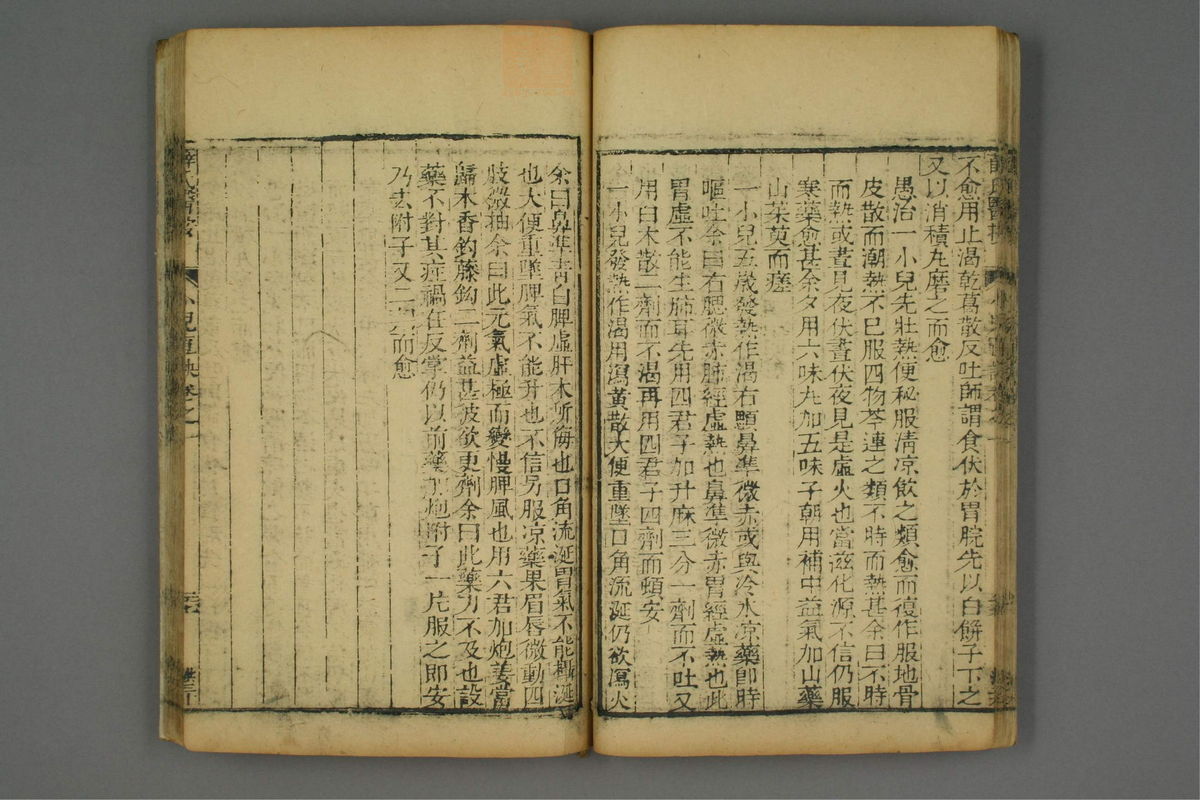 不愈用止渴乾葛散反吐師謂食伏於胃脘先以白餅子下之
又以消積丸磨之而愈
愚治一小兒先壯熱便秘服清凉飲之類愈而復作服地骨
皮散而潮熱不已服四物芩連之類不時而熱甚余曰不時
而熱或晝見夜伏晝伏夜見是虛火也當滋化源不信仍服
寒藥愈甚余夕用六味丸加五味子朝用補中益氣加山藥
山茱萸而瘥
一小兒五歲發熱作渴右顋鼻準微赤或與冷水凉藥卽時
嘔吐余曰右腮微赤肺經虛熱也鼻準微赤胃經虛熱也此
胃虛不能生肺耳先用四君子加升麻三分一劑而不吐又
用白术散二劑而不渴再用四君子四劑而頓安
一小兒發熱作渴用瀉黃散大便重墜口角流涎仍欲瀉火
余曰鼻準青白脾虛肝木所侮也口角流涎胃氣不能攝涎
也大便重墜脾氣不能升也不信另服凉藥果眉唇微動四
肢微抽余曰此元氣虛極而變慢脾風也用六君加炮姜當
歸木香鈎藤鈎二劑益甚彼欲更劑余曰此藥力不及也設
藥不對其症禍在反掌仍以前藥加炮附子一片服之卽安
乃去附子又二劑而愈
小兒直訣卷之一